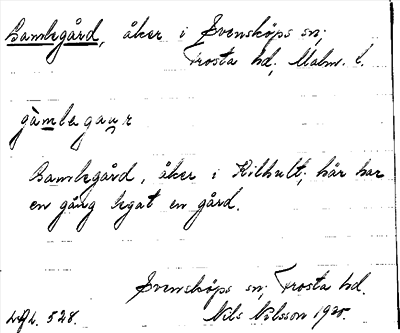 Gamlegård, åker i Svensköps sn;
Frosta hd, Malm. l.
gàmlegaụr
Gamlegård, åker i Kilhult; här har
en gång legat en gård.
Svensköps sn; Frosta hd.
Nils Nilsson 1925.
528.